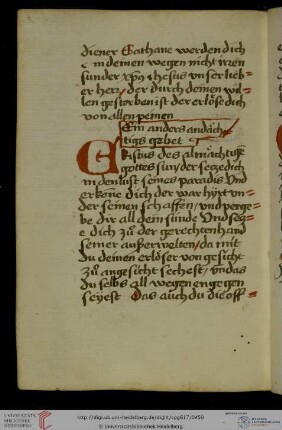 diener Sathane werden dich
in deinen wegen nicht irren
sunder xp̄s ihesus vnser lieb⸗
er herr/ der durch deinen wil⸗
len gestorben ist der erlöse dich
von allen peinen
Ein anders andäch⸗
tigs gebet
Cristus des almächtigē
gottes sun/ der setze dich
in den lust seines paradis Vnd
erkēne dich der war hyrt vn⸗
der seinen schaffen/ vnd verge⸗
be dir all dein sünde Vnd setz⸗
e dich zů der gerechten hand
seiner außerwelten/ da mit
du deinen erlöser von gesicht
zů angesicht sechest/ vn das
du selbs all wegen engegen
seyest Das auch du die off⸗
http://digi.ub.uni-heidelberg.de/diglit/cpg617/0058
© Universitätsbibliothek Heidelberg
UNIVERSITÄTS-
BIBLIOTHEK
HEIDELBERG